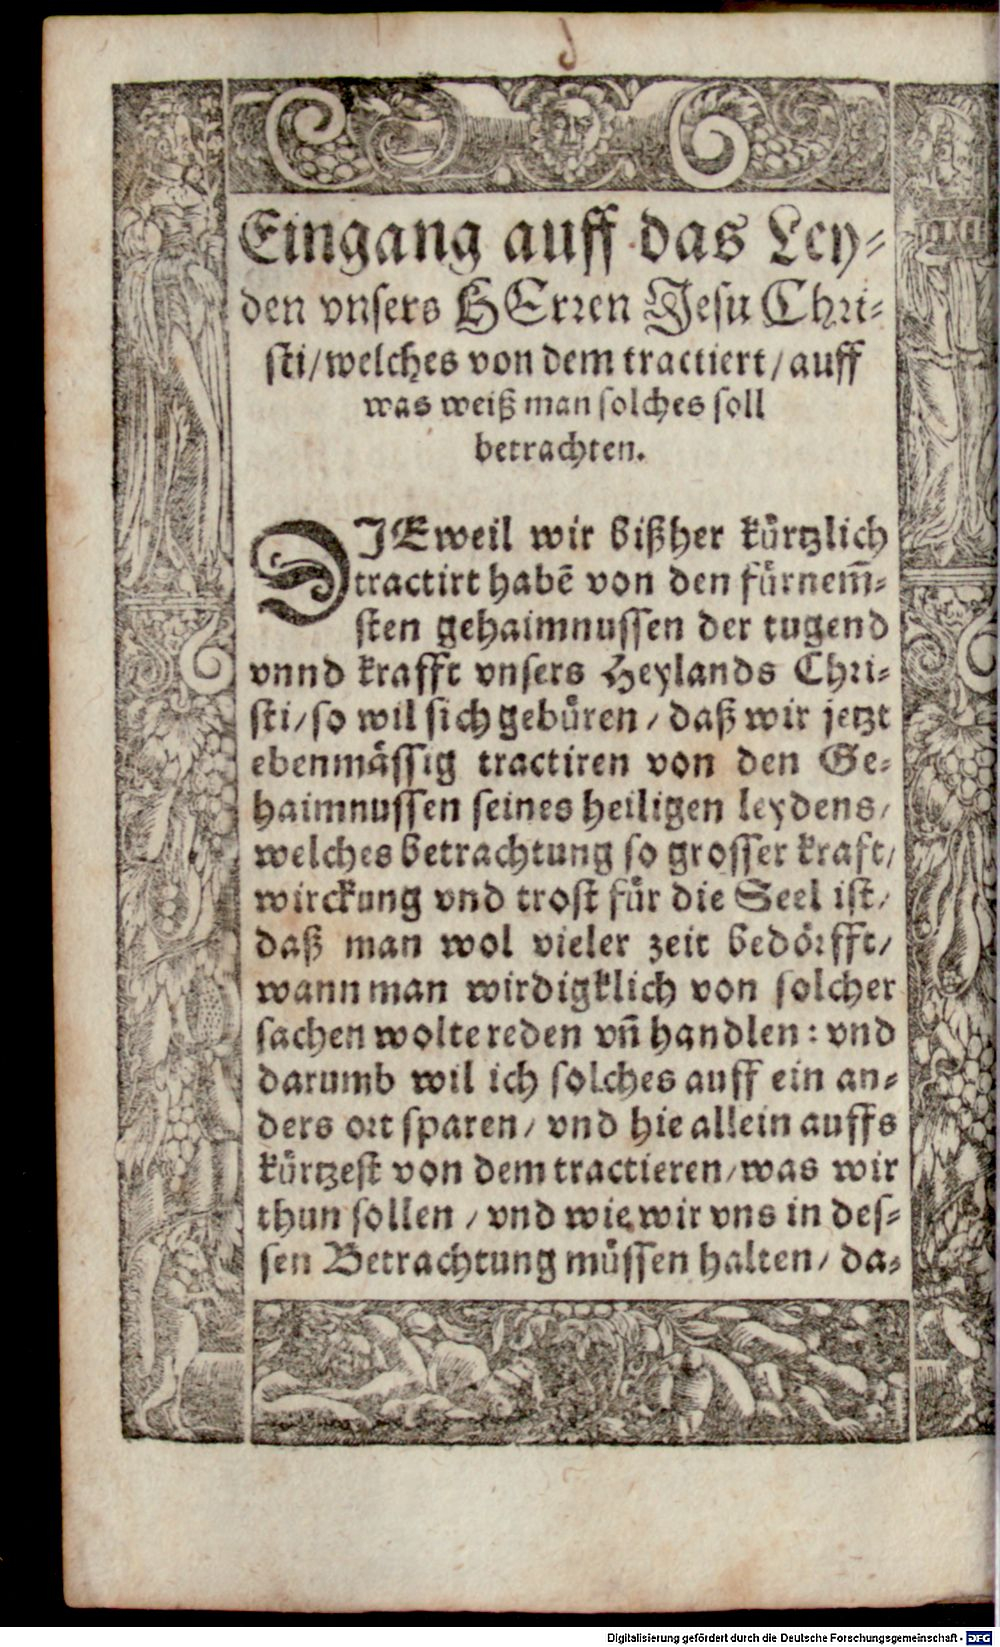 Eingang auff das Ley-
den vnsers HErren Jesu Chri-
sti/welches von dem tractiert/auff
was weiß man solches soll
betrachten.
DIEweil wir bißher kürtzlich
tractirt habē von den fürnem̄-
sten gehaimnussen der tugend
vnnd krafft vnsers Heylands Chri-
sti/so wil sich gebüren/daß wir jetzt
ebenmässig tractiren von den Ge-
haimnussen seines heiligen leydens/
welches betrachtung so grosser kraft/
wirckung vnd trost für die Seel ist/
daß man wol vieler zeit bedörfft/
wann man wirdigklich von solcher
sachen wolte reden vn̄ handlen: vnd
darumb wil ich solches auff ein an-
ders ort sparen/vnd hie allein auffs
kürtzest von dem tractieren/was wir
thun sollen/vnd wie wir vns in des-
sen Betrachtung müssen halten/da-
Digitalisierung gefördert durch die Deutsche Forschungsgemeinschaft - DFG